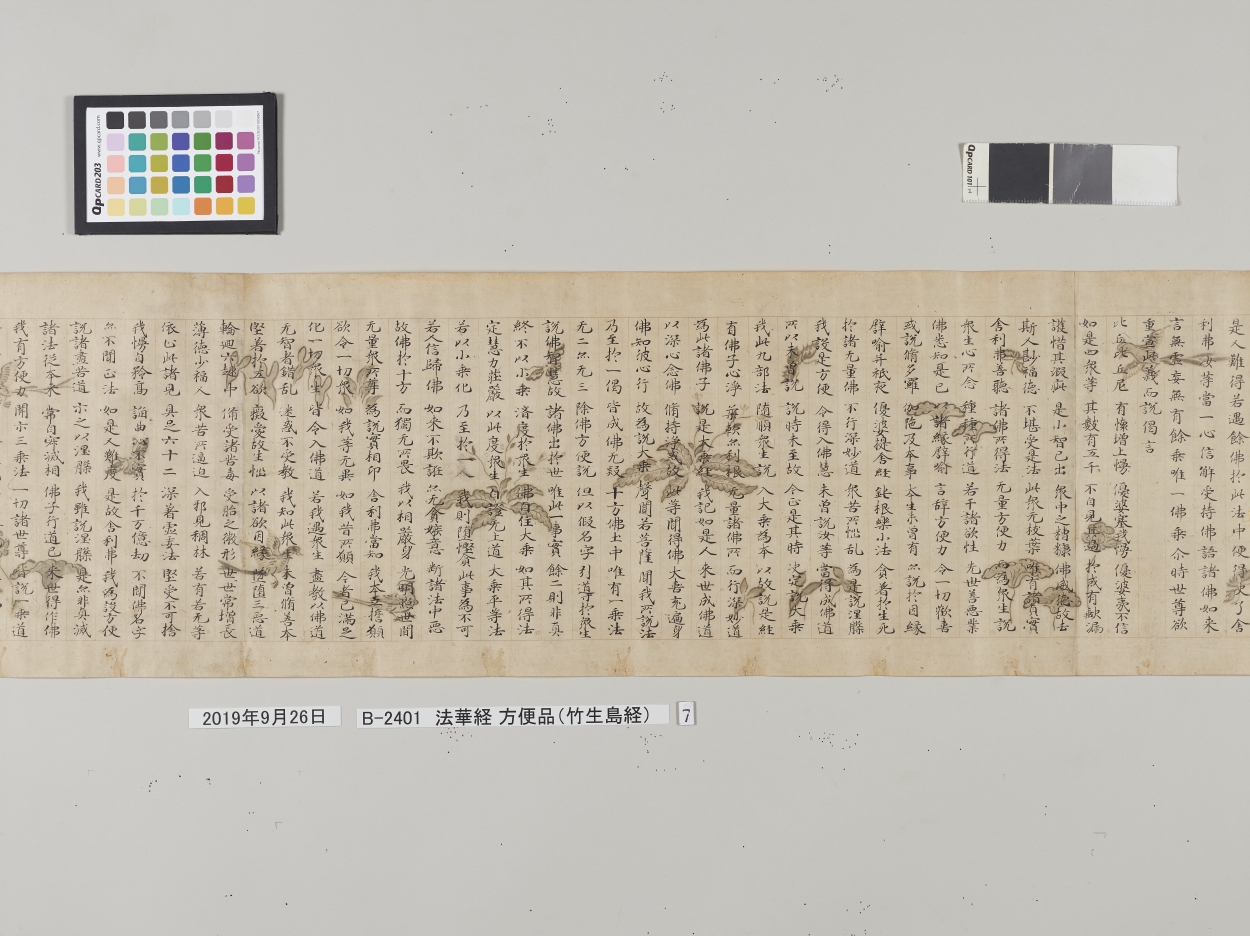 QpCARD 203
www.qpcard.com
QpCARD 101
是人難得若遇餘佛於此法中便得決了舍
利弗汝等當一心信解受持佛語諸佛如來
言無虛妄無有餘乘唯一佛乘尒時世尊欲
重宣此義而說偈言
比丘比丘尼 有懐增上慢 優婆塞我慢 優婆夷不信
如是四衆等 其數有五千 不自見其過 於戒有缺漏
護惜其瑕疵 是小智已出 衆中之糟糠 佛威德故去
斯人尠福德 不堪受是法 此衆无枝葉 唯有諸貞實
舍利弗善聽 諸佛所得法 无量方便力 而為衆生說
衆生心所念 種種所行道 若干諸欲性 先世善惡業
佛悉知是已 以諸緣譬喻 言辭方便力 令一切歡喜
或說脩多羅 伽陁及本事 本生未曾有 亦說於因緣
譬喻并祇夜 優婆提舍經 鈍根樂小法 貪著於生死
於諸无量佛 不行深妙道 衆苦所惱乱 為是說涅槃
我設是方便 令得入佛慧 未曾說汝等 當得成佛道
所以未曾說 說時未至故 今正是其時 決定說大乘
我此九部法 隨順衆生說 入大乘為本 以故說是經
有佛子心淨 柔軟亦利根 无量諸佛所 而行深妙道
為此諸佛子 說是大乘經 我記如是人 來世成佛道
以深心念佛 脩持淨戒故 此等聞得佛 大喜充遍身
佛知彼心行 故為說大乘 聲聞若菩薩 聞我所說法
乃至於一偈 皆成佛无疑 十方佛土中 唯有一乘法
无二亦无三 除佛方便說 但以假名字 引導於衆生
說佛智慧故 諸佛出於世 唯此一事實 餘二則非真
終不以小乘 濟度於衆生 佛自住大乘 如其所得法
定慧力莊嚴 以此度衆生 自證无上道 大乘平等法
若以小乘化 乃至於一人 我則堕慳貪 此事為不可
若人信歸佛 如來不欺誑 亦无貪嫉意 斷諸法中惡
故佛於十方 而獨无所畏 我以相嚴身 光明照世間
无量衆所尊 為說實相印 舍利弗當知 我本立誓願
欲令一切衆 如我等无異 如我昔所願 今者已滿足
化一切衆生 皆令入佛道 若我遇衆生 盡教以佛道
无智者錯乱 迷惑不受教 我知此衆生 未曾脩善本
堅著於五欲 癡愛故生惱 以諸欲因緣 墜堕三惡道
輪廻六趣中 備受諸苦毒 受胎之微形 世世常增長
薄德少福人 衆苦所逼迫 入邪見稠林 若有若无等
依止此諸見 具足六十二 深著虛妄法 堅受不可捨
我慢自矜髙 諂曲心不實 於千万億劫 不聞佛名字
亦不聞正法 如是人難度 是故舍利弗 我為設方便
說諸盡苦道 示之以涅槃 我雖說涅槃 是亦非真滅
諸法從本來 常自寂滅相 佛子行道已 來世得作佛
我有方便力 開示三乘法 一切諸世尊 皆說一乘道
2019年9月26日
B-2401 法華経 方便品（竹生島経）
7